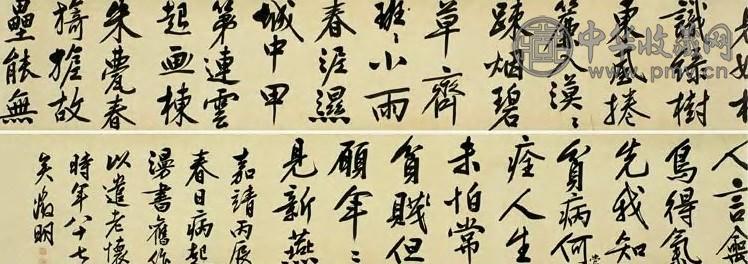 如相
識綠樹
東風捲
簾人漠〻
疎烟碧
草齊
班〻小雨
春泥濕
城中甲
第連雲
起画棟
朱甍春
旖旎故
壘能無
人言禽
鳥得氣
先我知
貧病何
當
痊人生
未怕常
貧賤但
願年〻
見新燕
嘉靖丙辰
春日病起
漫書舊作
以遣老懷
時年八十七
矣徵明
中华收藏网